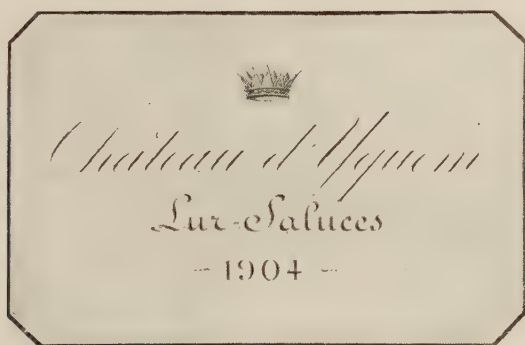 Château d'Yquem
Lur-Saluces
- 1904 -